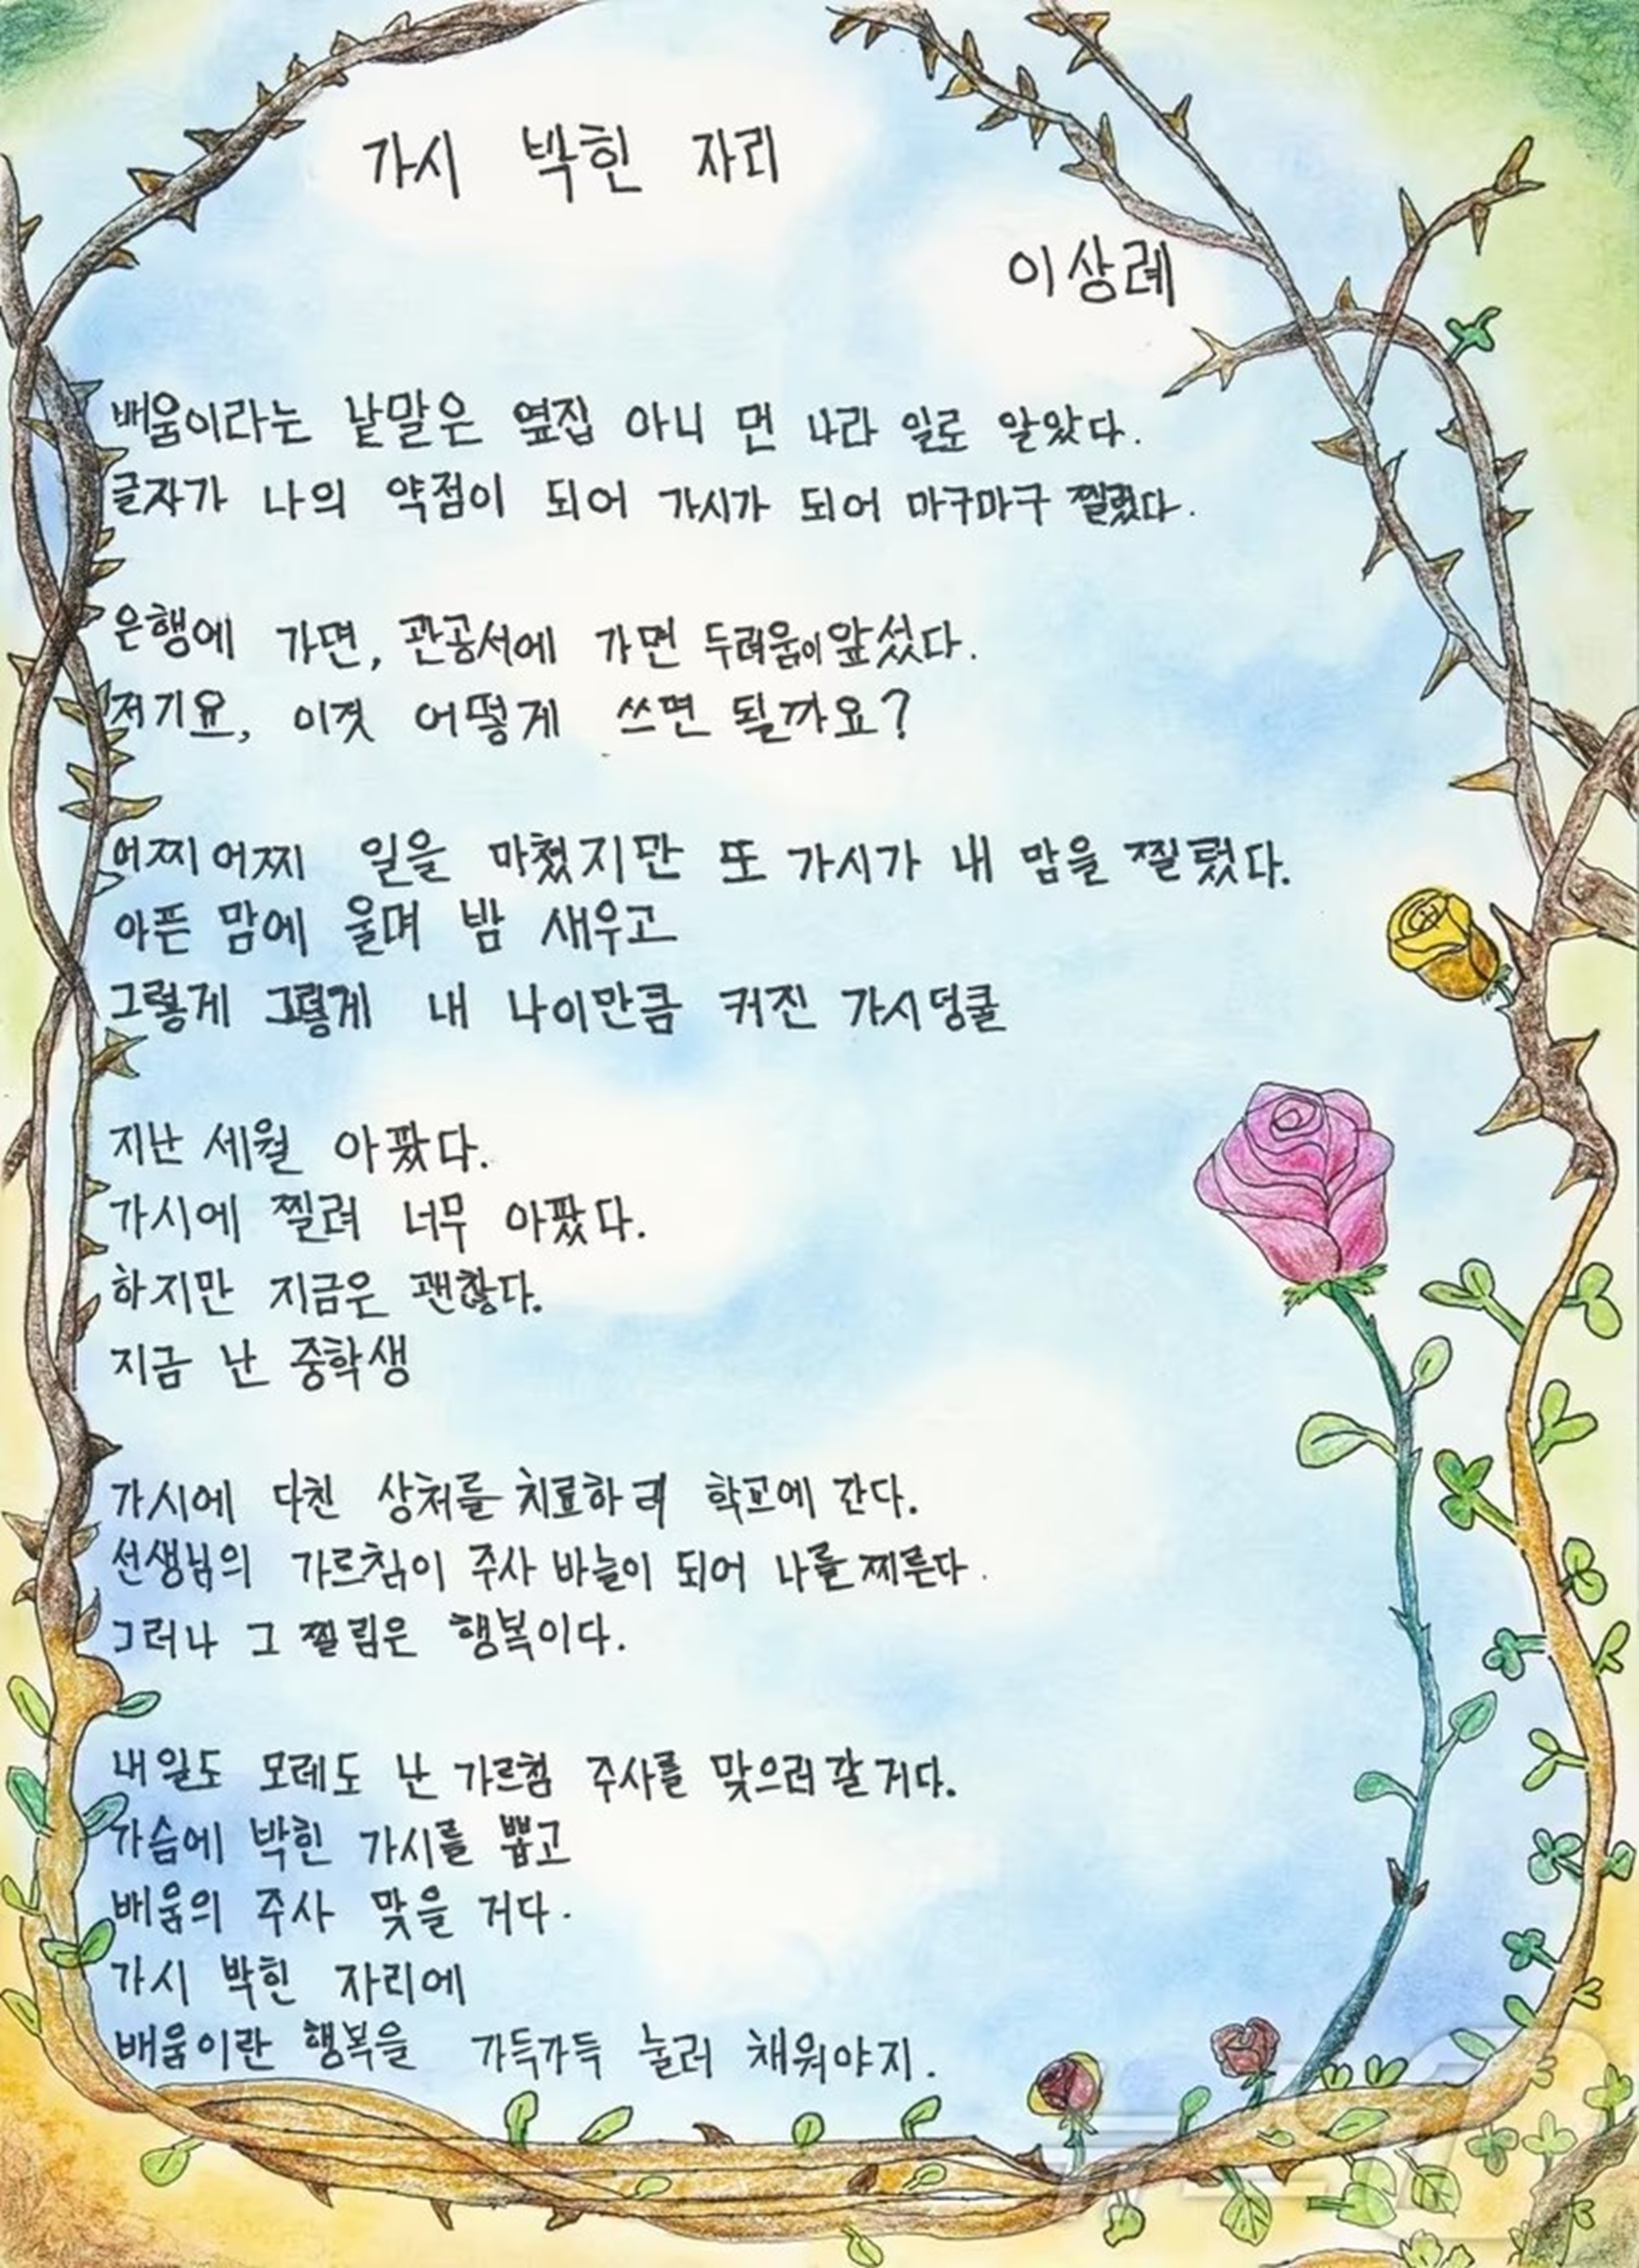 가시 박힌 자리
이상례
배움이라는 낱말은 옆집 아니 먼 나라 일로 알았다.
글자가 나의 약점이 되어 가시가 되어 마구마구 찔렀다.
은행에 가면, 관공서에 가면 두려움이 앞섰다.
저기요, 이것 어떻게 쓰면 될까요?
어찌어찌 일을 마쳤지만 또 가시가 내 맘을 찔렀다.
아픈 맘에 울며 밤 새우고
그렇게 그렇게 내 나이만큼 커진 가시덩쿨
지난 세월 아팠다.
가시에 찔려 너무 아팠다.
하지만 지금은 괜찮다.
지금 난 중학생
가시에 다친 상처를 치료하려 학교에 간다.
선생님의 가르침이 주사 바늘이 되어 나를 찌른다.
그러나 그 찔림은 행복이다.
내일도 모레도 난 가르침 주사를 맞으러 갈 거다.
가슴에 박힌 가시를 뽑고
배움의 주사 맞을 거다.
가시 박힌 자리에
배움이란 행복을 가득가득 눌러 채워야지.
뉴스1